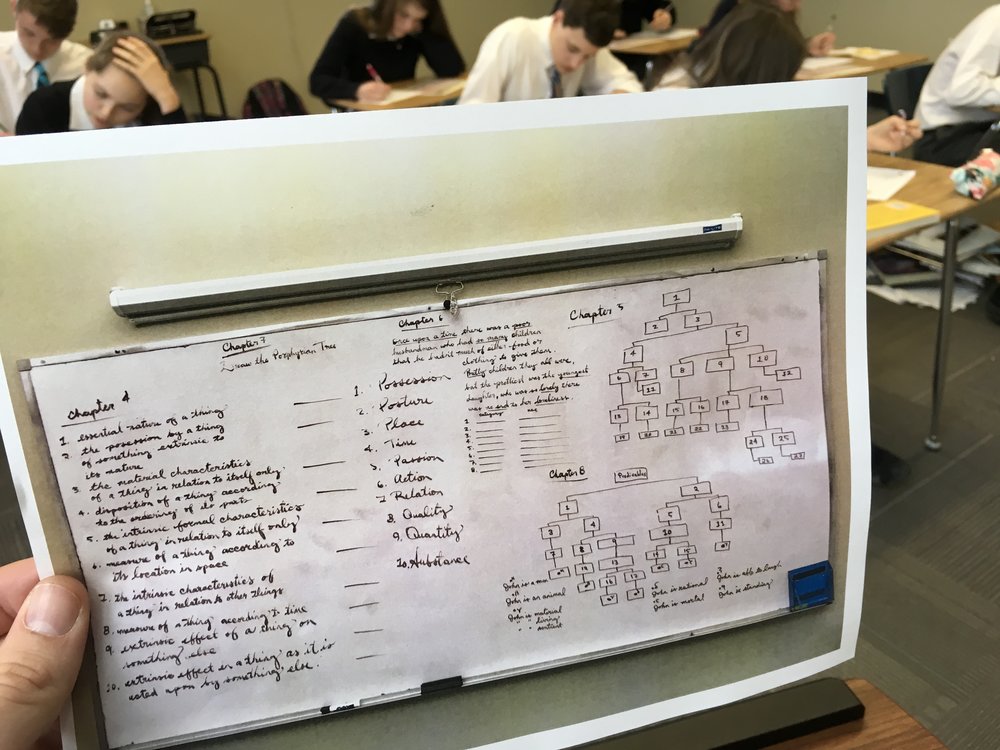 Chapter 4
1. essential nature of a thing
2. the possession by a thing
of something extrinsic to
its nature
3. the material characteristics
of a thing in relation to itself only
4. disposition of a thing according
to the ordering of its parts
5. the intrinsic formal characteristics
of a thing in relation to itself only
6. measure of a thing according to
its location in space
7. the intrinsic characteristics of
a thing in relation to other things
8. measure of a thing according to time
9. extrinsic effect of a thing on
something else
10. extrinsic effect in a thing as it is
acted upon by something else.
Chapter 7
Draw the Porphyrian Tree
1. Possession
2. Posture
3. Place
4. Time
5. Passion
6. Action
7. Relation
8. Quality
9. Quantity
10. Substance
Chapter 6
Once upon a time there was a poor
husbandman who had so many children
that he hadn't much of either food or
clothing to give them.
Pretty children they all were,
but the prettiest was the youngest
daughter, who was so lovely there
was no end to her loveliness.
category
1
2
3
4
5
6
7
8
Chapter 5
1
2 3
4 5
6 7 8 9 10
11 12
13 14 15 16 17 18
19 20 21 22 23
24 25
Chapter 8
Predicables
1 2
3 4 5 6
7 8 9 10 11
John is a man
John is an animal
John is material
" " living
" " sentient
John is rational
John is mortal
John is able to laugh
John is standing